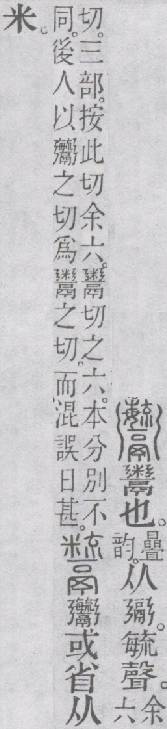 鬻也。疊韵。从䰜。毓聲。余六
切。三部。按此切余六。鬻切之六。本分別不
同。後人以之切爲鬻之切。而混誤日甚。
或省从
米。